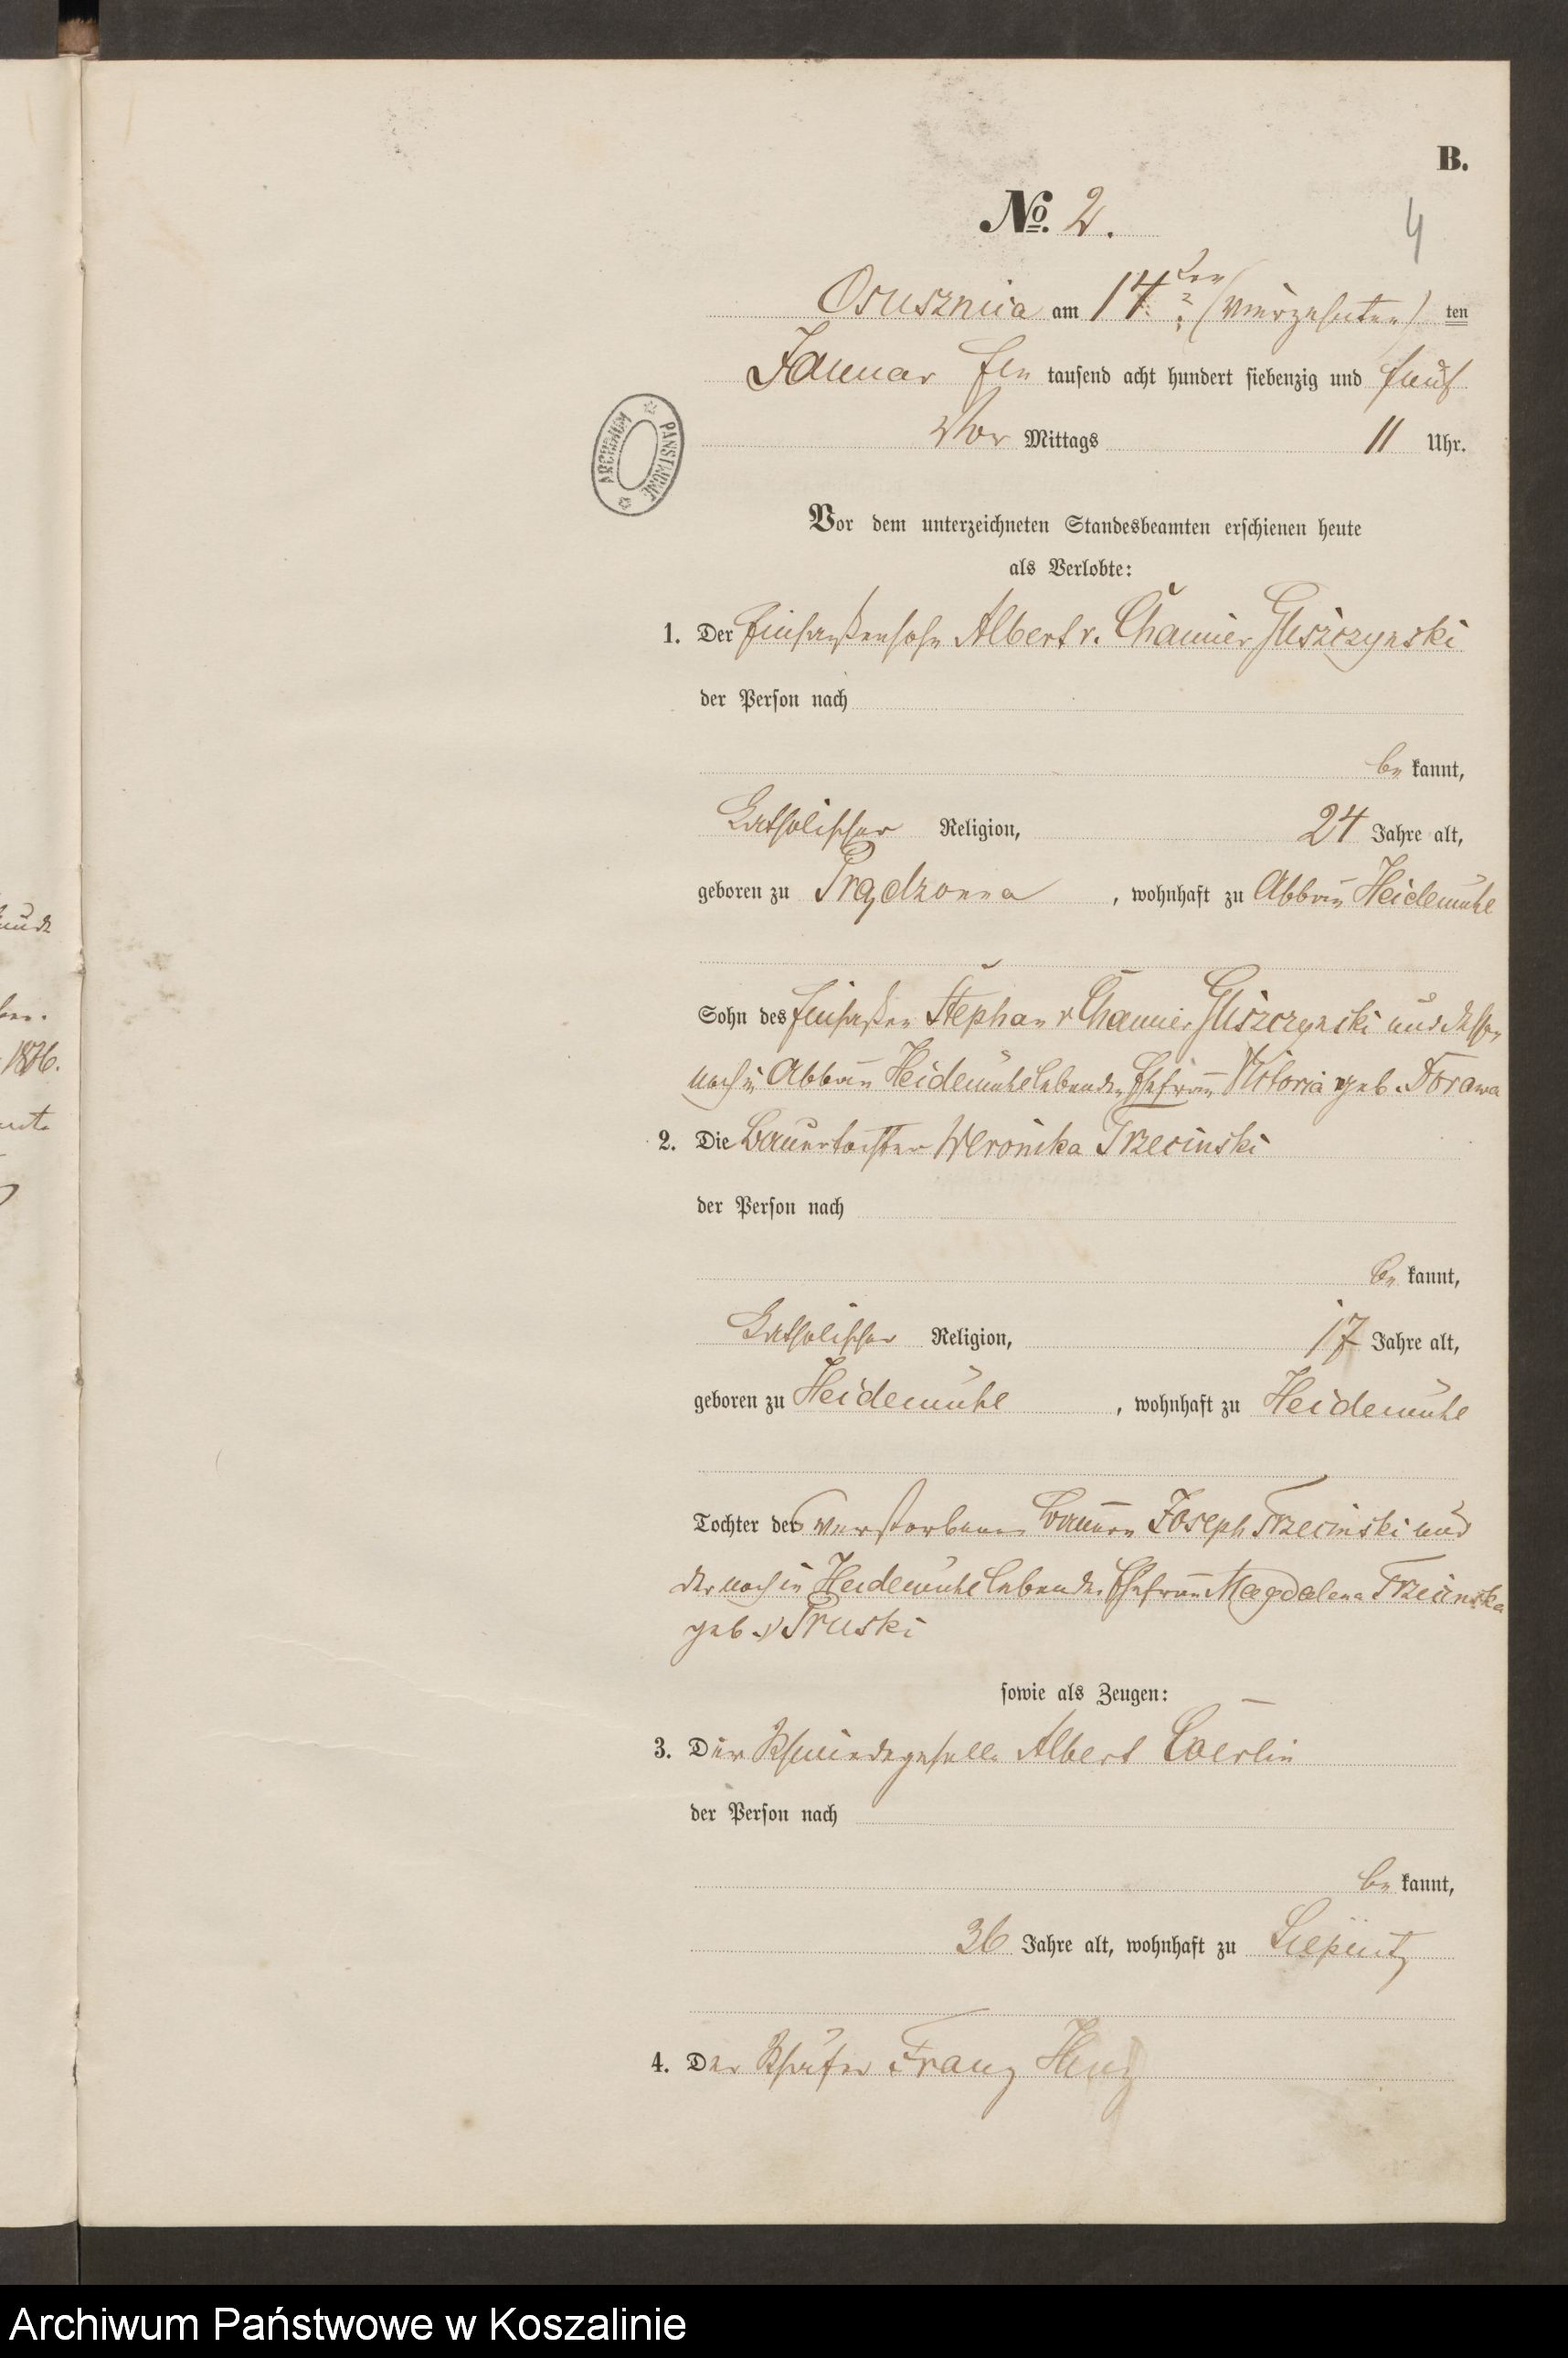 B.
No. 2.
4
Osusznica am 14ten (vierzehnten) ten
Januar Ein tausend acht hundert siebenzig und fünf
Vor Mittags 11 Uhr.
ARCHIWUM PAŃSTWOWE
Vor dem unterzeichneten Standesbeamten erschienen heute
als Verlobte:
1. Der Einsaßensohn Albert v. Chamier Gliszczynski
der Person nach
be kannt,
Katholischer Religion, 24 Jahre alt,
geboren zu Prądzonna, wohnhaft zu Abbau Heidemühl
Sohn des Einsaßen Stephan v Chamier Gliszczynski und dessen
noch in Abbau Heidemühl lebenden Ehefrau Viktoria geb.
2. Die Bauertochter Weronika Trzecinski
der Person nach
be kannt,
Katholischer Religion, 17 Jahre alt,
geboren zu Heidemühl, wohnhaft zu Heidemühl
Tochter des verstorbenen Bauern Joseph Trzecinski und
der noch in Heidemühl lebenden Ehefrau Magdalena Trzecinska
geb. v Pruski
sowie als Zeugen:
3. Der Schmiedegeselle Albert
der Person nach
be kannt,
36 Jahre alt, wohnhaft zu
4. Der Schäfer Franz
1876.
Archiwum Państwowe w Koszalinie